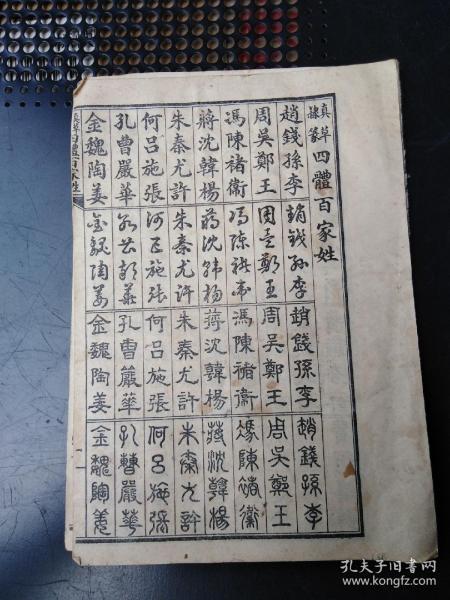 真草
隸篆
四體百家姓
趙錢孫李
周吳鄭王
馮陳褚衛
蔣沈韓楊
朱秦尤許
何呂施張
孔曹嚴華
金魏陶姜
趙錢孫李
周吳鄭王
馮陳褚衛
蔣沈韓楊
朱秦尤許
何呂施張
孔曹嚴華
金魏陶姜
趙錢孫李
周吳鄭王
馮陳褚衛
蔣沈韓楊
朱秦尤許
何呂施張
孔曹嚴華
金魏陶姜
趙錢孫李
周吳鄭王
馮陳褚衛
蔣沈韓楊
朱秦尤許
何呂施張
孔曹嚴華
金魏陶姜
真草四體百家姓
一
孔夫子旧书网
www.kongfz.com